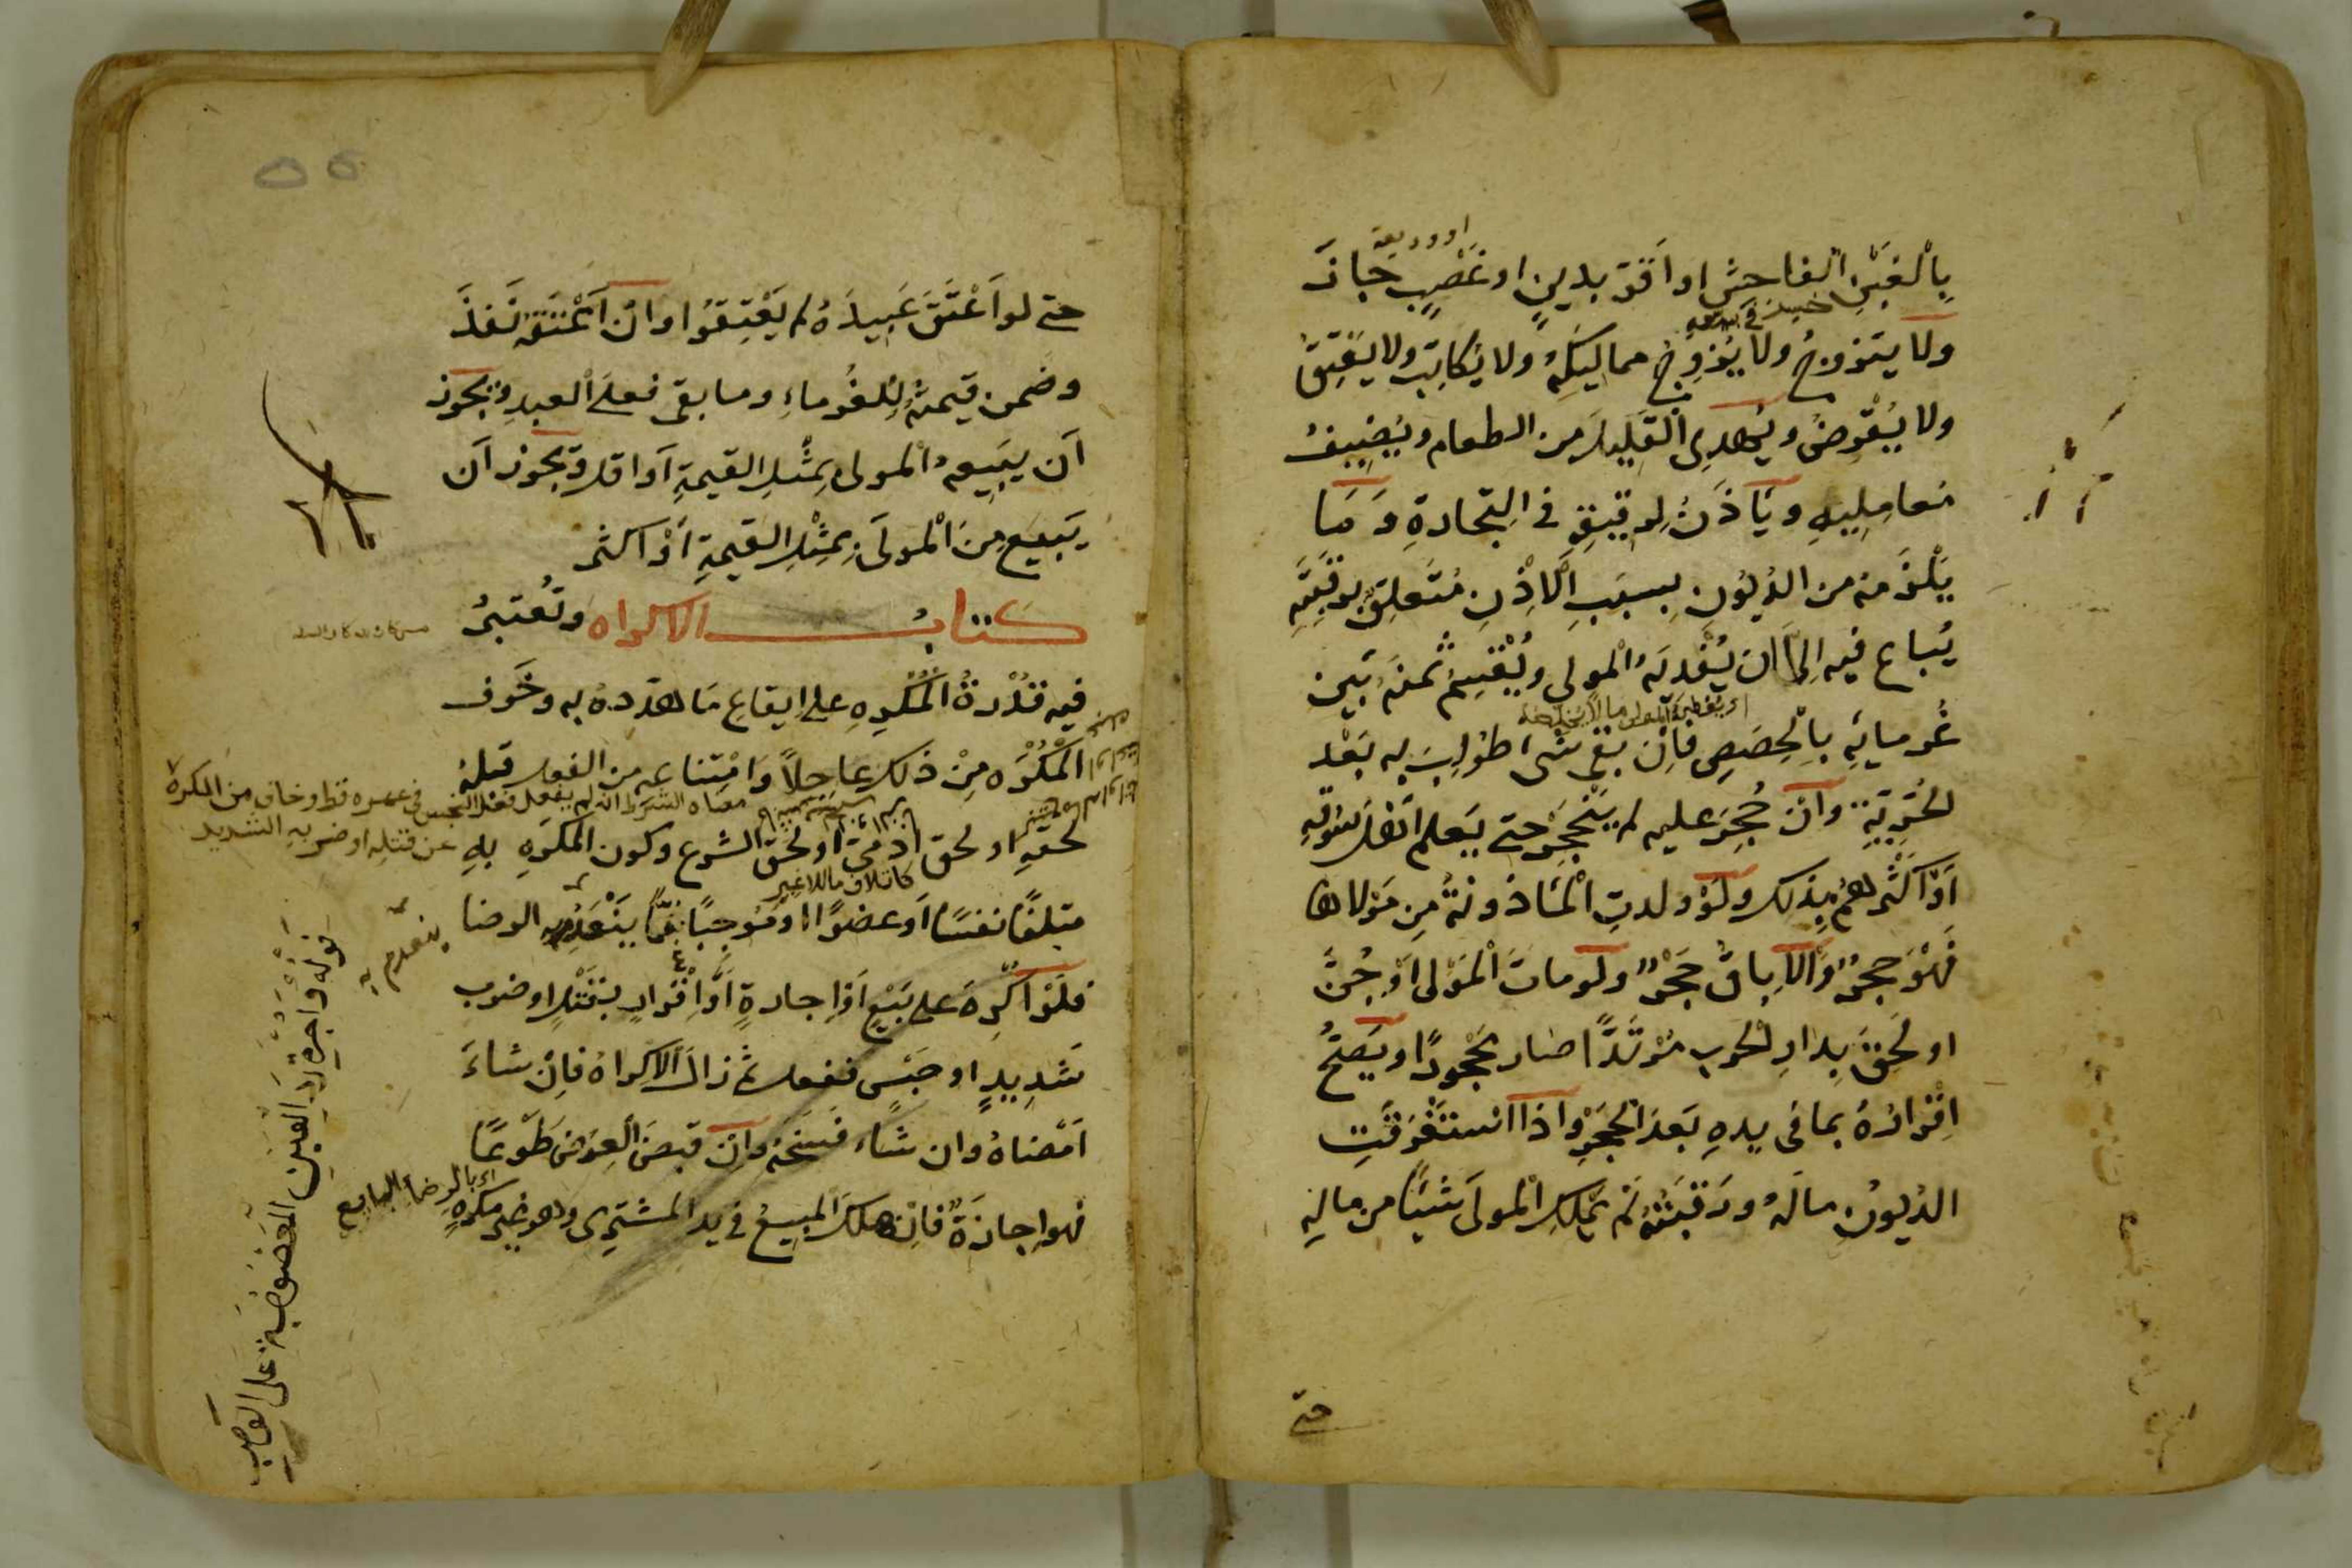 بِالْغَبْنِ الفاحش او اَقرّ بدينٍ او غَصْبٍ جاز
او وديعة
ولا يتزوج ولا يُزوِّج مماليكَه ولا يُكاتِبُ ولا يُعْتِقُ
ولا يُقْرِضُ ويُهدِى القَلِيلَ من الطعام ويُضِيفُ
مُعامِلِيهِ ويَأذَنُ لِرقيقِه في التِجارةِ وَمَا
يَلْزَمُه من الدُيُونِ بِسبَبِ الْاِذْنِ مُتَعلِقٌ برقبَتِه
يُباع فيه اِلّا ان يُفْديَهُ الْمولى ويُقْسَمُ ثمنُه بَين
غُرمائِه بِالْحِصَصِ فاِنْ بقى شئ طُولِبَ به بَعْد
الحُرِيَّةِ وَاِنْ حُجِرَ عليه لم يَنْحَجِرْ حتى يَعلم اَهْل سُوقِه
اَوْ اَكْثَرُهُمْ بِذلك ولَوْ ولدتِ الْمَاذونةُ مِن مَوْلاها
فَهُوَ حَجْرٌ وَالاِباقُ حَجْرٌ ولَو ماتَ الْمَوْلى اَوْ جُنَّ
او لَحِقَ بِدارِ الحرب مُرْتَدًّا صَار مَحْجُورًا ويَصِحُّ
اِقْرارُهُ بما فى يدِهِ بَعْدَ الْحَجْرِ وَاِذا اسْتَغْرقَتِ
الدُيونُ مالَهُ ورَقبَتَهُ لَمْ يَمْلِكِ الْمولىَ شيئًا من مالِهِ
حتى
حتى لو اَعْتَقَ عَبِيدَهُ لم يَعْتِقُوا وَاِنْ اَعْتَقَهُ نَفَذَ
وضمن قيمتَهُ لِلغُرماءِ وما بقى فعلَى العبدِ ويجوز
اَن يَبِيعهُ المولى بِمِثْلِ القيمةِ اَو اقل ويجوز اَن
يَبيعَ مِنَ الْمولَى بِمِثْلِ القيمةِ اَوْ اكثر
كتابُ الاكراه وتُعتبرُ
فيه قُدْرةُ الْمُكْرِهِ على ايقاعِ مَا هدّدهُ به وخَوف
الْمُكْرَه مِنْ ذلك عاجلاً وَامْتِناعه من الفعل قبلهُ
معناه الشرط انه لم يفعل فعلا النجس في عمره قط او خاف من المكره
عن قتلِه او ضربِه الشديد
لحقّهِ او لحق ادمىّ او لحقّ الشرع وكون المكرَهِ بهِ
كاتلاف مال الغير
متلفًا نفسًا اَو عضوًا او مُوجِبًا غمًّا يَنْعَدِمُ به الرضا
ينعدم به
فلَوْ اُكْرِهَ على بَيْعٍ اَوْ اِجارةٍ اَوْ اِقْرارٍ بقتْلٍ او ضرب
شَدِيدٍ او حَبْسٍ ففعل ثم زال الاكراهُ فاِنْ شاءَ
اَمْضاهُ وان شاءَ فسَخَهُ وَاِنْ قبضَ العِوضَ طَوْعًا
فهو اِجازةٌ فاِنْ هلكَ المبيعُ في يد المشترى وهو غير مكرهٍ
اى بالرضاء البايع
قوله واجرة رد العين المغصوبة على الغاصب